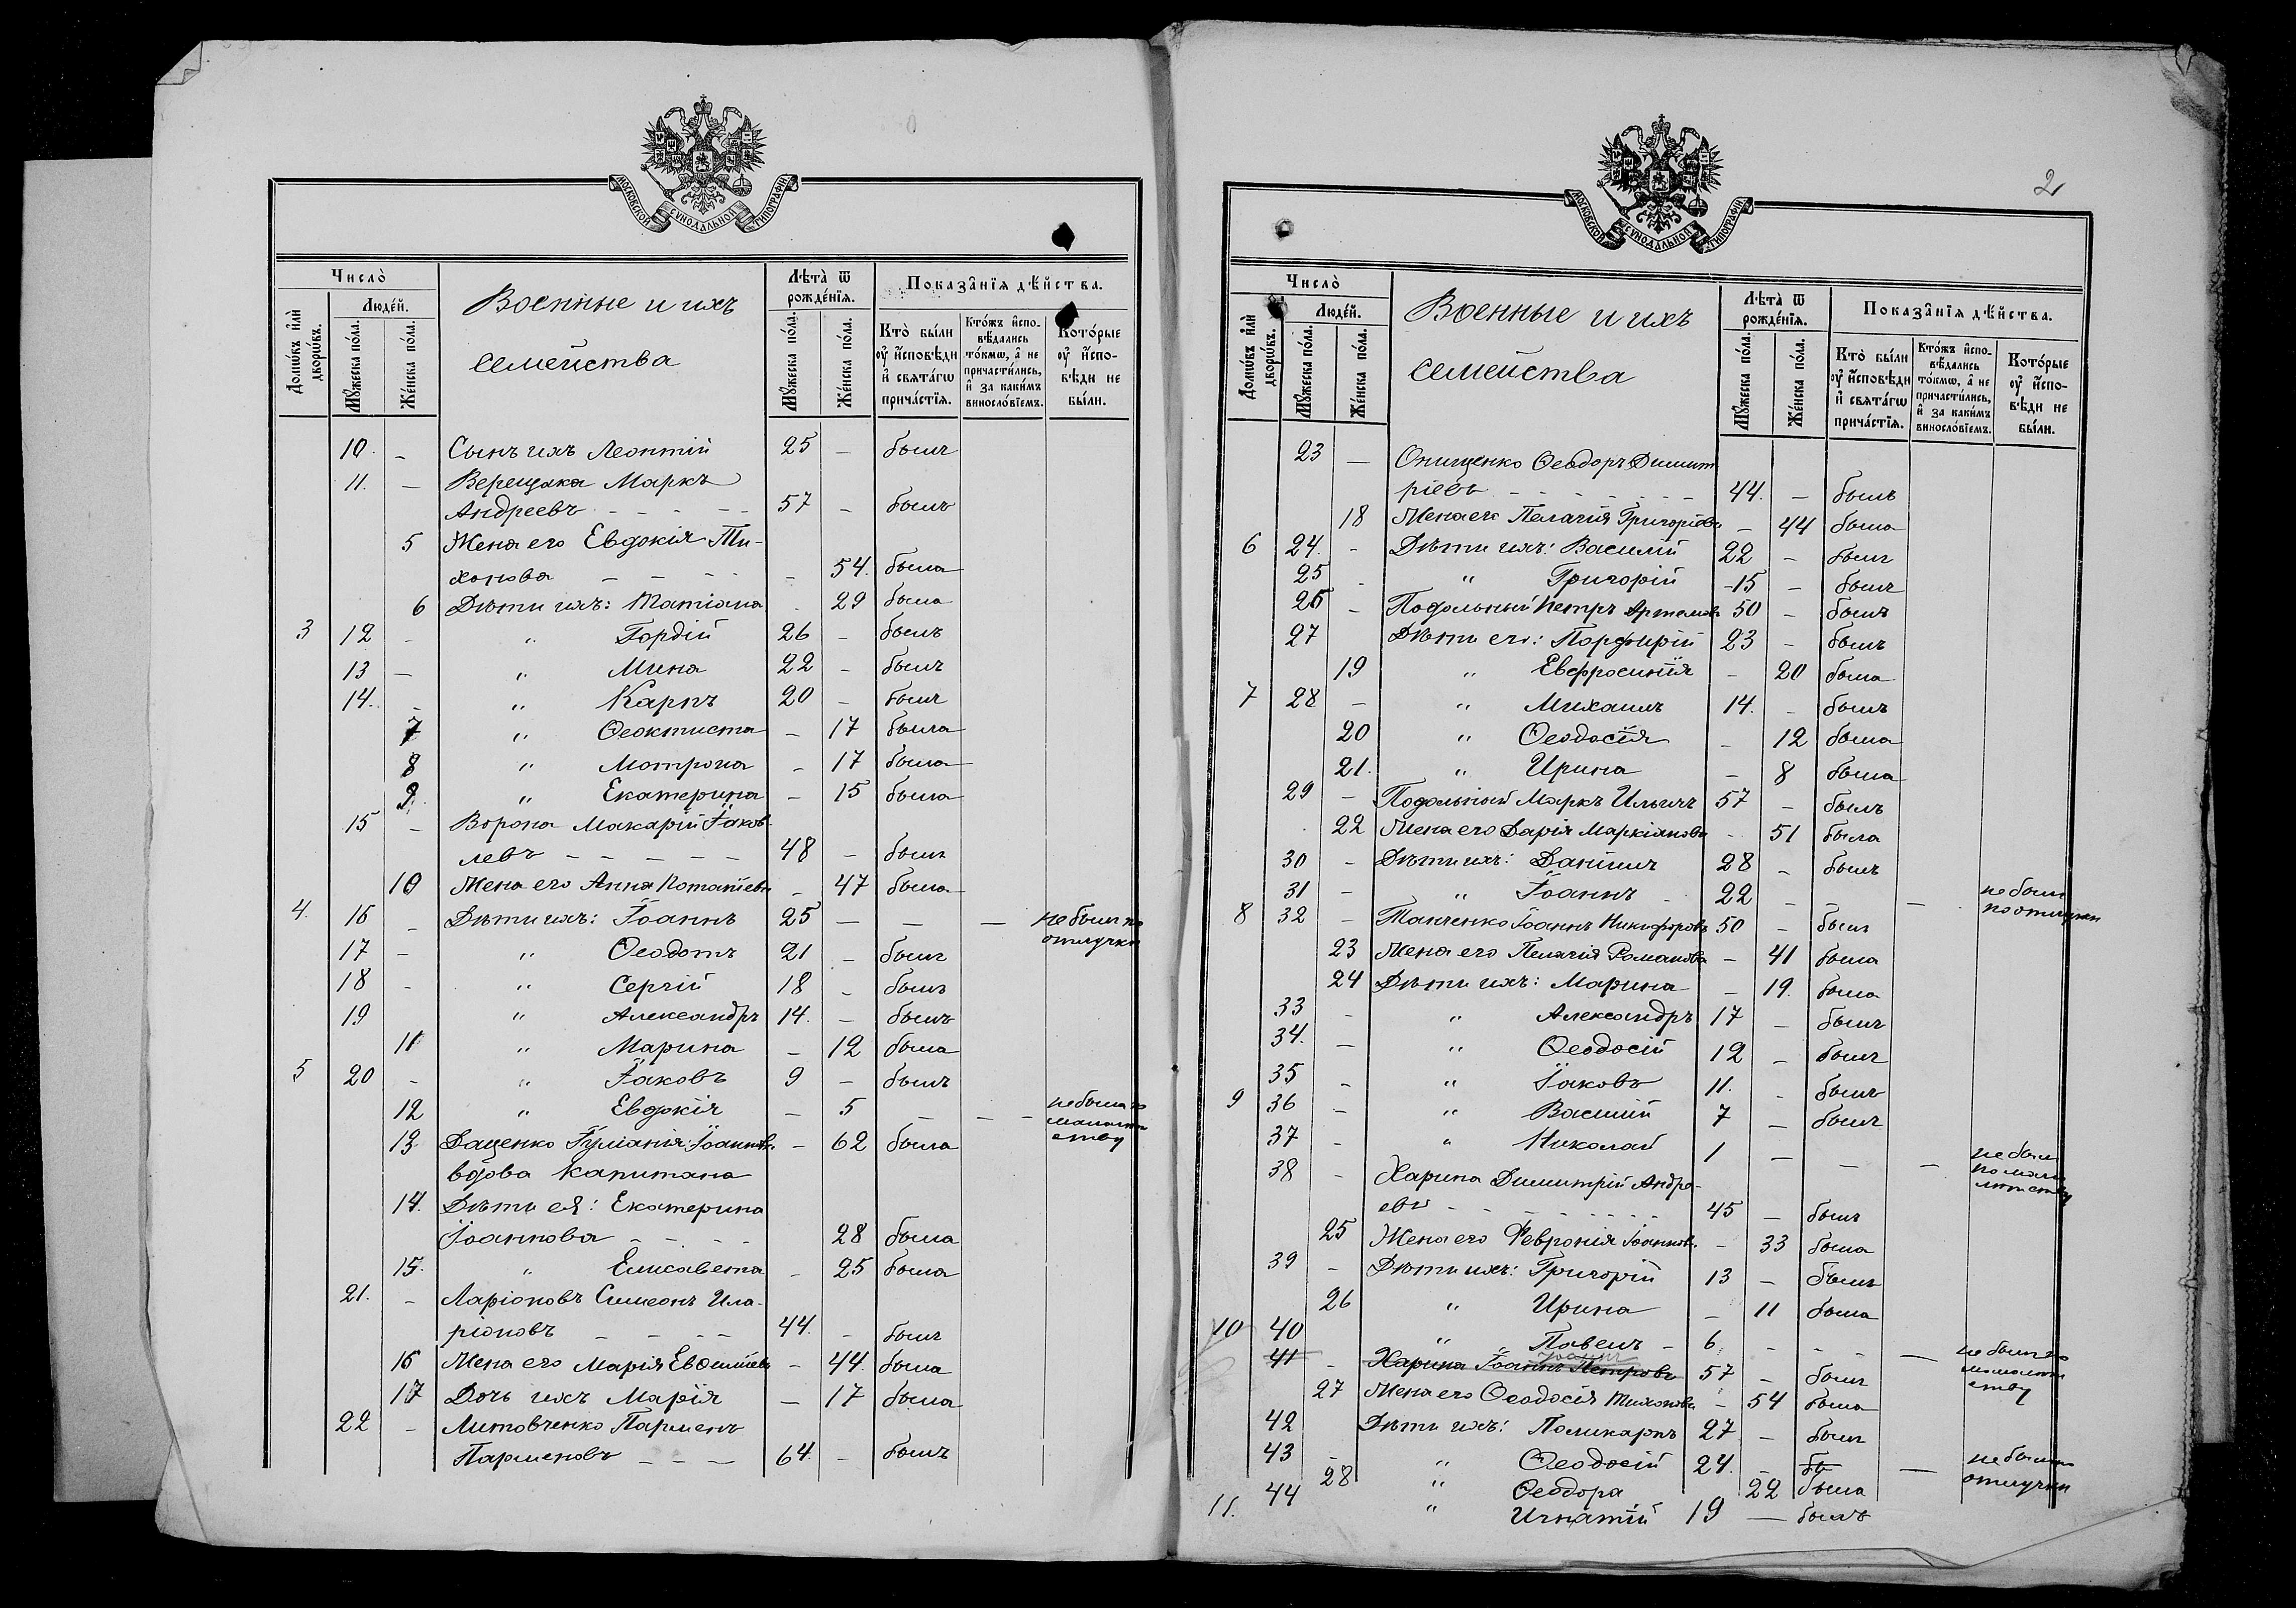 МОСКОВСКОЙ СѴНОДАЛЬНОЙ ТИПОГРАФІИ
Число̀
Домѡ́въ и҆лѝ дворѡ́въ.
Люде́й.
Мꙋ́жеска по́ла.
Же́нска по́ла.
Военные и ихъ
семейства
Лѣта̀ ѿ рожде́нїѧ.
Мꙋ́жеска по́ла.
Же́нска по́ла.
Показа̂нїѧ дѣ́йства.
Кто̀ бы́ли оу҆ и҆́сповѣди и҆ свѧта́гѡ прича́стїѧ.
Кто́жъ и҆спо-
вѣ́дались то́кмѡ, а҆ не причасти́лись, и҆ за каки́мъ виносло́вїемъ.
Кото́рые оу҆ и҆́спо-
вѣди не бы́ли.
10. - Сынъ ихъ Леонтій 25 - былъ
11. - Верещака Маркъ
Андреевъ - - - - - 57 - былъ
5 Жена его Евдокія Ти-
хонова - - - - - 54. была
6 Дѣти ихъ: Татіана - 29 была
3 12 - " Гордій 26 - былъ
13 - " Мина 22 - былъ
14. - " Карпъ 20 - былъ
7 " Ѳеоктиста - 17 была
8 " Мотрона - 17 была
9. " Екатерина - 15 была
15 - Ворона Макарій Іаков-
левъ - - - - - 48 - былъ
10 Жена его Анна Потапіева - 47 была
4. 16 - Дѣти ихъ: Іоаннъ 25 - - - не былъ по
отлучки
17 - " Ѳеодотъ 21 - былъ
18 - " Сергій 18 - былъ
19 " Александръ 14. - былъ
11 " Марина - 12 была
5 20 - " Іаковъ 9 - былъ
12 " Евдокія - 5 - - - не была по
малолѣт
ству
13. Даценко Іуліанія Іоаннов. - 62 была
вдова капитана
14. Дѣти ея: Екатерина
Іоаннова - - - - 28 была
15. " Елисавета - 25 была
21. - Ларіоновъ Симеонъ Ила-
ріоновъ - - - - 44. - былъ
16 Жена его Марія Евѳиміева - 44. была
17 Дочь ихъ Марія - 17 была
22 - Литовченко Парменъ
Парменовъ - - - 64. - былъ
2
МОСКОВСКОЙ СѴНОДАЛЬНОЙ ТИПОГРАФІИ
Число̀
Домѡ́въ и҆лѝ дворѡ́въ.
Люде́й.
Мꙋ́жеска по́ла.
Же́нска по́ла.
Военные и ихъ
семейства
Лѣта̀ ѿ рожде́нїѧ.
Мꙋ́жеска по́ла.
Же́нска по́ла.
Показа̂нїѧ дѣ́йства.
Кто̀ бы́ли оу҆ и҆́сповѣди и҆ свѧта́гѡ прича́стїѧ.
Кто́жъ и҆спо-
вѣ́дались то́кмѡ, а҆ не причасти́лись, и҆ за каки́мъ виносло́вїемъ.
Кото́рые оу҆ и҆́спо-
вѣди не бы́ли.
23 - Онищенко Ѳеодоръ Димит
ріевъ - - - - - - 44. - былъ
18 Жена его Пелагія Григоріева - 44 была
6 24. - Дѣти ихъ: Василій 22 - былъ
25 - " Григорій -15 - былъ
26 - Подольный Петръ Артемовъ 50 - былъ
27 Дѣти его: Порфирій 23 - былъ
19 " Евфросинія - 20 была
7 28 - " Михаилъ 14. - былъ
20 " Ѳеодосія - 12 была
21. " Ирина - 8 была
29 - Подольный Маркъ Ильичъ 57 - былъ
22 Жена его Дарія Маркіанова - 51 была
30 - Дѣти ихъ: Даніилъ 28 - былъ
31 - " Іоаннъ 22 - - - не былъ
по отлучки
8 32 - Танченко Іоаннъ Никифоровъ 50 - былъ
23 Жена его Пелагія Романова - 41 была
24 Дѣти ихъ: Марина - 19. была
33 - " Александръ 17 - былъ
34. - " Ѳеодосій 12 - былъ
35 - " Іаковъ 11. - былъ
9 36 - " Василій 7 - былъ
37 - " Николай 1 - - - не былъ
по мало
лѣтству
38 - Харина Димитрій Андре-
евъ - - - - - - - 45 - былъ
25 Жена его Февронія Іоаннов. - 33 была
39 - Дѣти ихъ: Григорій 13 - былъ
26 " Ирина - 11 была
10 40 " Павелъ - 6 - - - не былъ по
малолѣт
ству
Іоаннъ
41 - Харина Іоаннъ Петровъ 57 - былъ
27 Жена его Ѳеодосія Тихонова - 54 была
42 Дѣти ихъ: Поликарпъ 27 - былъ
43 - " Ѳеодосій 24. - бы - не былъ по
отлучки
28 " Ѳеодора 22 была
11. 44 " Игнатій 19 - былъ